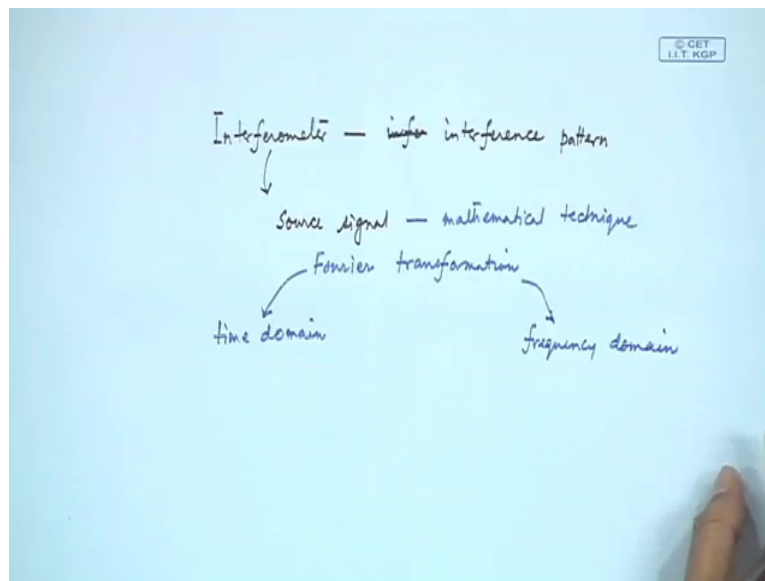 © CET
I.I.T. KGP
Interferometer — interference pattern
Source signal — mathematical technique
Fourier transformation
time domain
frequency domain